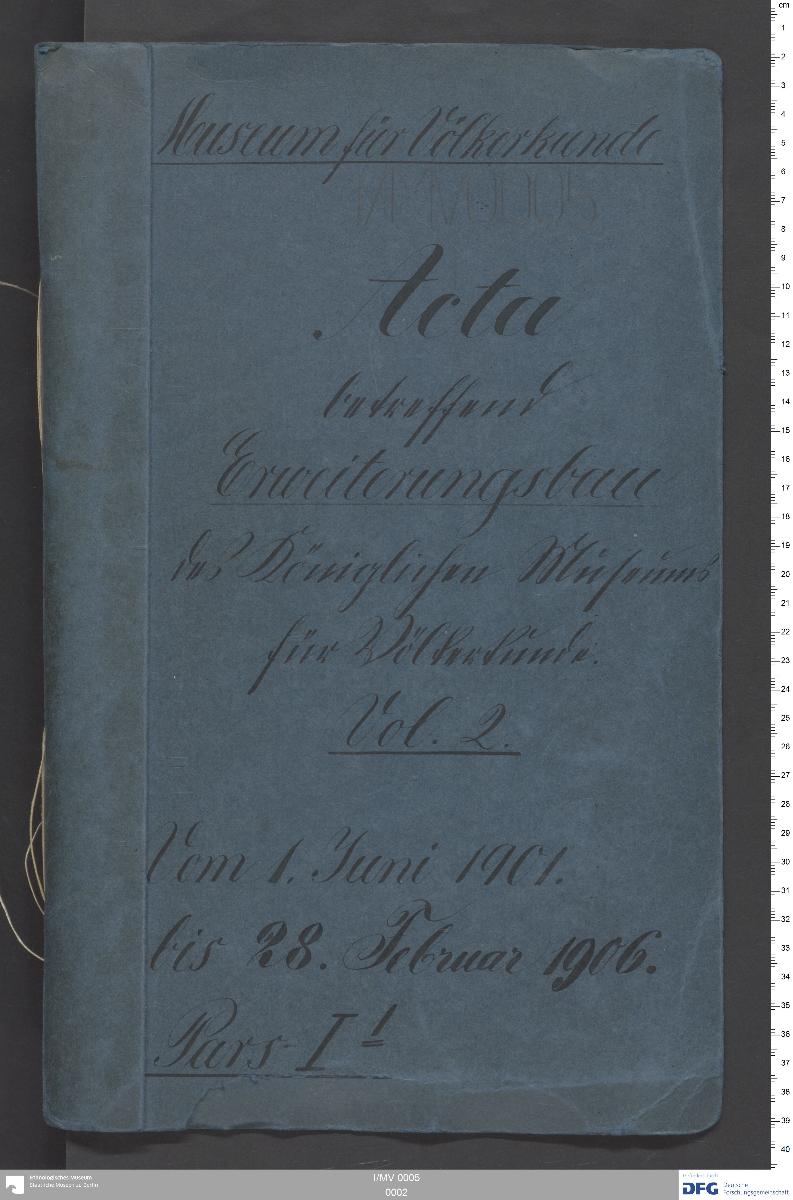 Museum für Völkerkunde
I/MV 0005
Acta
betreffend
Erweiterungsbau
des Königlichen Museums
für Völkerkunde.
Vol. 2.
Vom 1. Juni 1901.
bis 28. Februar 1906.
Pars I 1
cm
1
2
3
4
5
6
7
8
9
10
11
12
13
14
15
16
17
18
19
20
21
22
23
24
25
26
27
28
29
30
31
32
33
34
35
36
37
38
39
40
Ethnologisches Museum
Staatliche Museen zu Berlin
I/MV 0005
0002
Gefördert durch
DFG Deutsche
Forschungsgemeinschaft